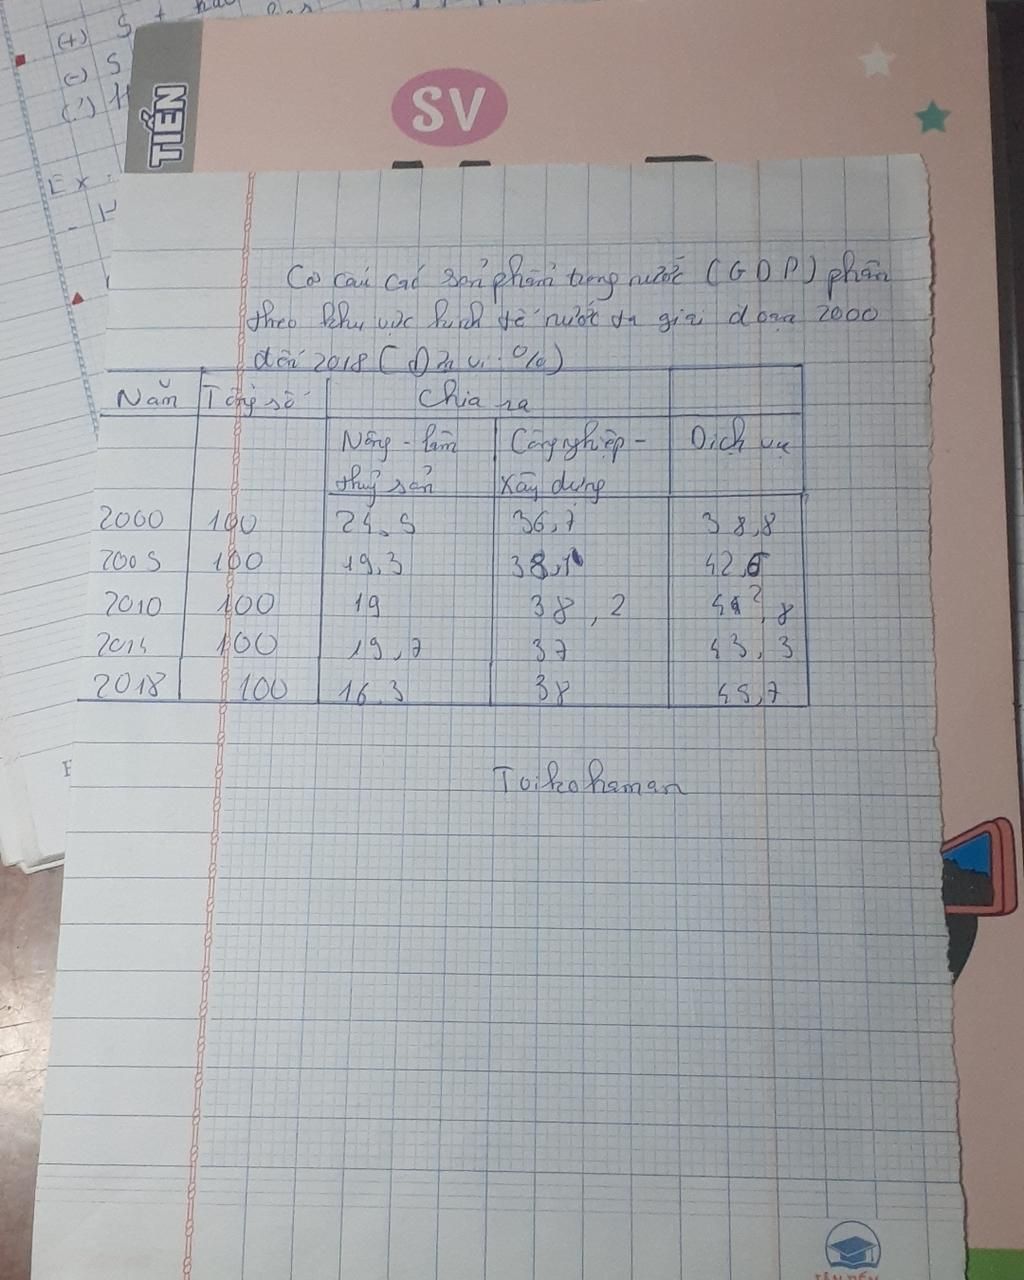 (+) S +
(-) S
(?) H
Ex:
TIẾN
SV
Cơ cấu các sản phẩm trong nước (GDP) phân
theo khu vực kinh tế nước ta giai đoạn 2000
đến 2018 (Đơn vị: %)
Năm Tổng số Chia ra
Nông - lâm Công nghiệp - Dịch vụ
thuỷ sản xây dựng
2000 100 24,5 36,7 38,8
2005 100 19,3 38,1 42,6
2010 100 19 38,2 42,8
2014 100 19,7 37 43,3
2018 100 16,3 38 45,7
Toikohaman
TÂN TIẾN